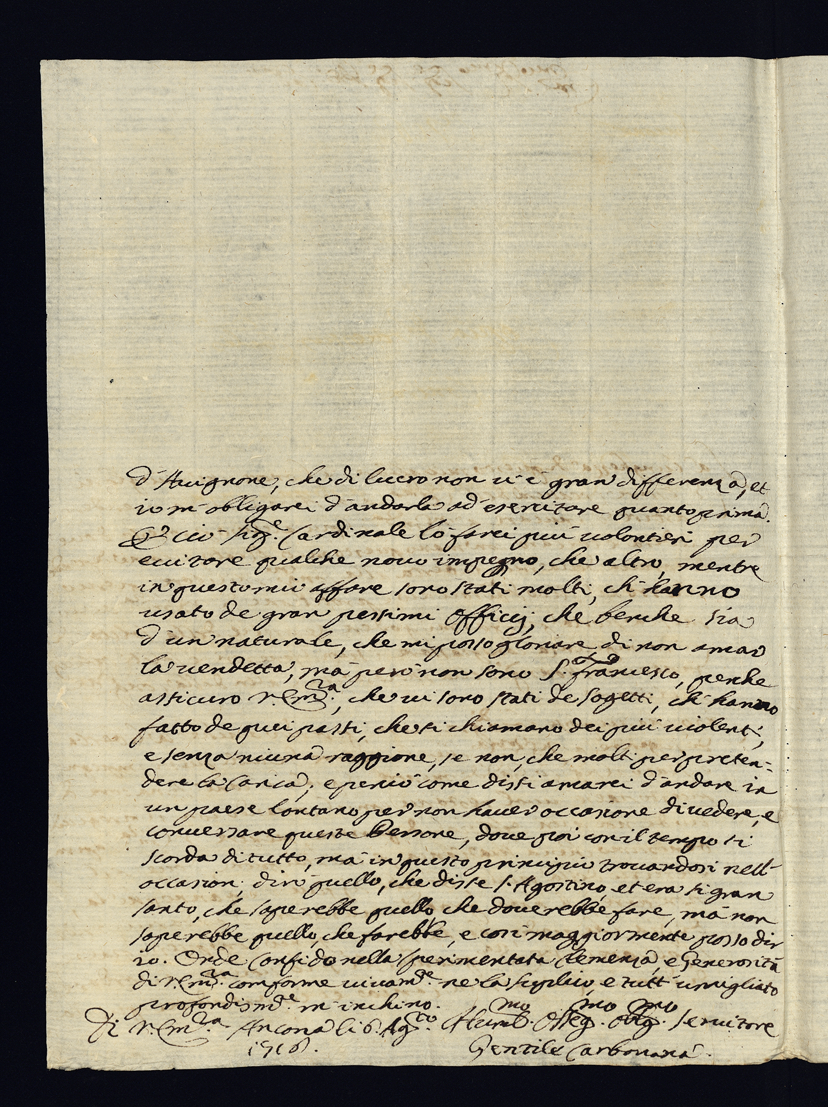 d'Avignone, che di lucro non vi è gran differenza, et
io m'obligarei d'andarla ad esercitare quanto prima.
E ciò Sig.e Cardinale lo farei più volontieri per
evitare qualche novo impegno, che altro, mentre
in questo mio affare sono stati molti, ch'hanno
usato de gran pessimi officij, che benche sia
d'un naturale, che mi posso gloriare di non amar
la vendetta, mà però non sono S. Francesco, perche
assicuro V. Em.za, che vi sono stati de sogetti, ch'hanno
fatto de quei passi, che si chiamano dei più violenti,
e senza niuna raggione, se non, che molti per preten-
dere la carica; e perciò come dissi amarei d'andare in
un paese lontano per non haver occasione di vedere, e
conversare queste Persone, dove poi con il tempo si
scorda di tutto, mà in questo principio trovandosi nell'
occasion dirò quello, che disse S. Agostino et era si gran
santo, che saperebbe quello che doverebbe fare, mà non
saperebbe quello, che farebbe, e così maggiormente posso dir
io. Onde confido nella sperimentata Clemenza, e Generosità
di V. Em.za conforme vivam.e ne la supplico e tutt'umigliato
profondissim.e m'inchino.
Di V. Em.za Ancona li 6 Ag.to Humil.mo Osseq.mo Oblig.mo Servitore
1716. Gentile Carbonara.